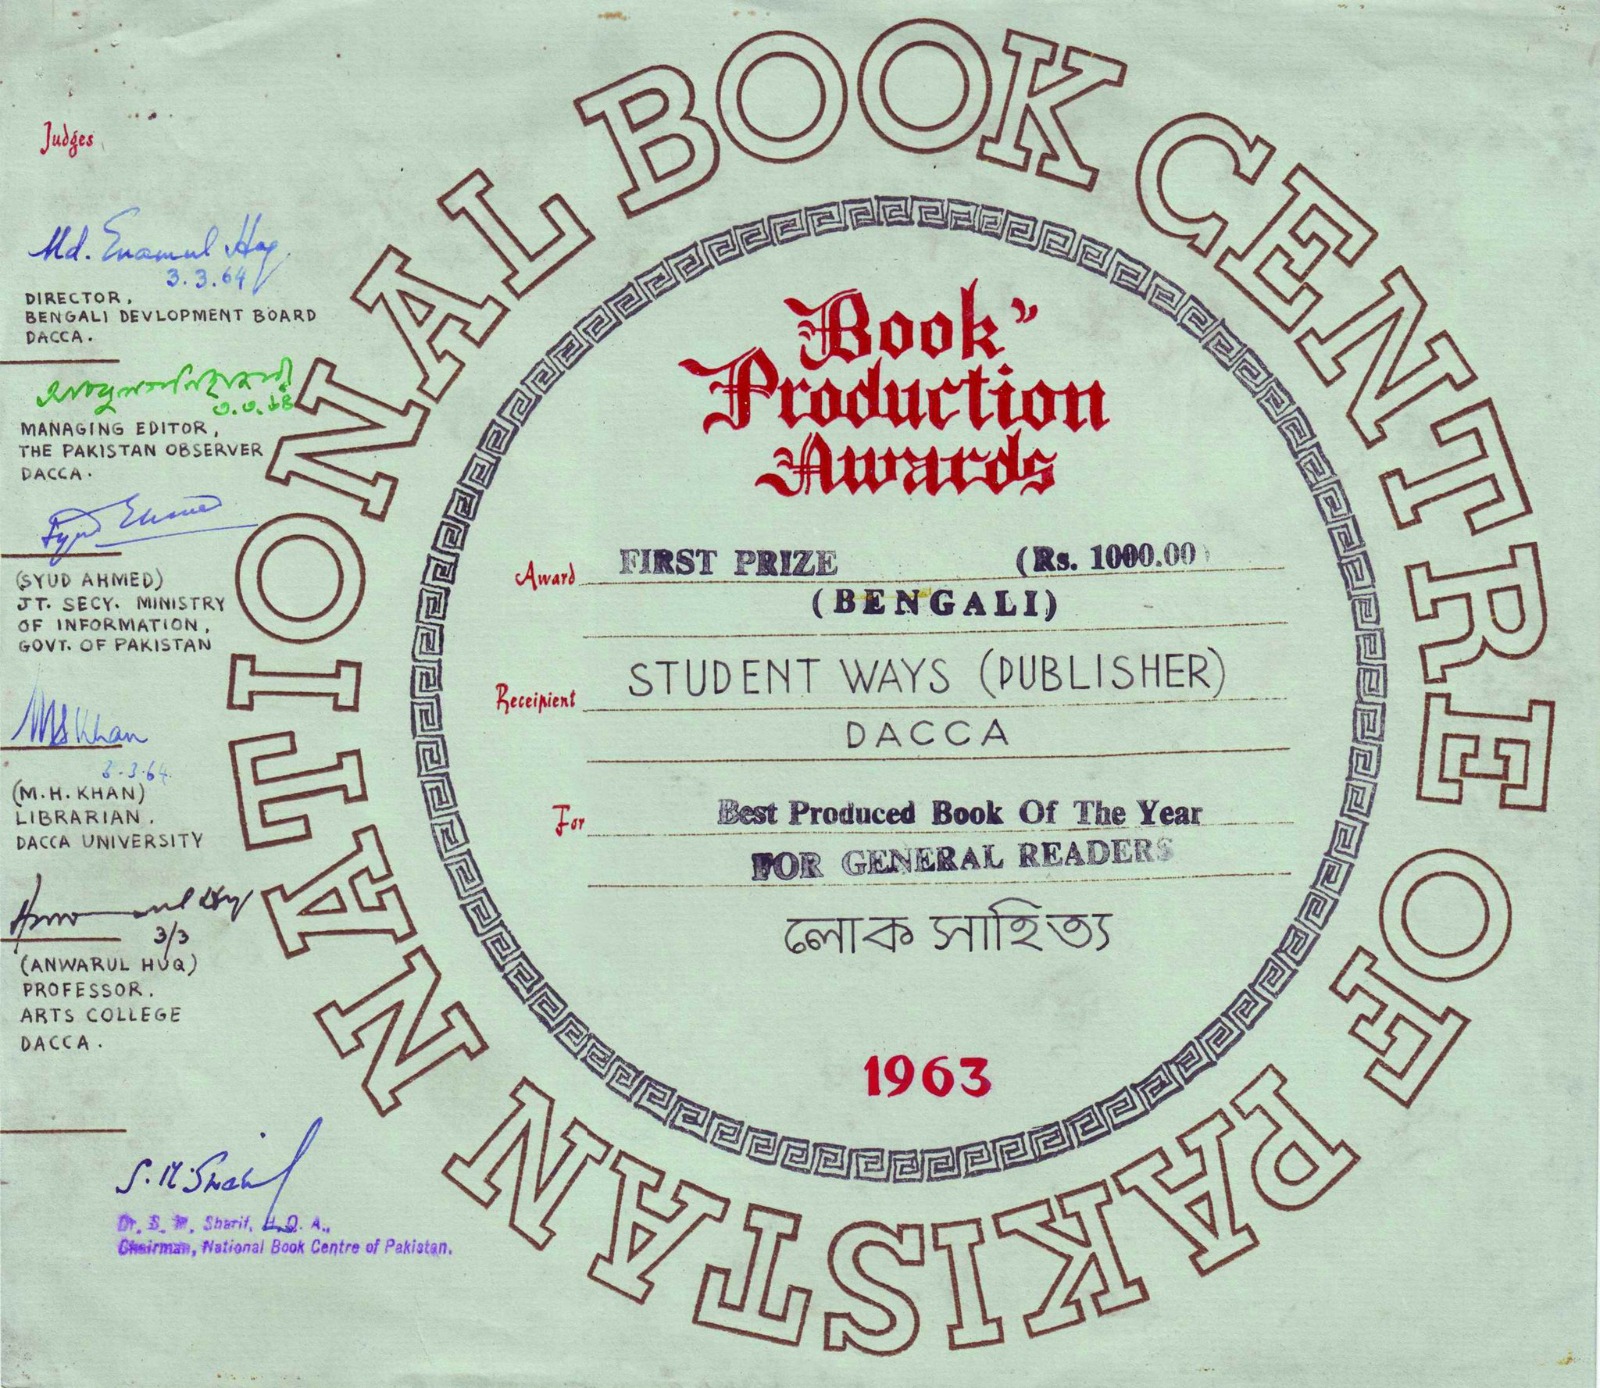 NATIONAL BOOK CENTRE OF PAKISTAN
Judges
Md. Enamul Haq
3.3.64
DIRECTOR,
BENGALI DEVLOPMENT BOARD
DACCA.
৩.৩.৬৪
MANAGING EDITOR,
THE PAKISTAN OBSERVER
DACCA.
Syud Ahmed
(SYUD AHMED)
JT. SECY. MINISTRY
OF INFORMATION,
GOVT. OF PAKISTAN
Khan
3.3.64
(M.H. KHAN)
LIBRARIAN.
DACCA UNIVERSITY
Anwarul Huq
3/3
(ANWARUL HUQ)
PROFESSOR.
ARTS COLLEGE
DACCA.
S. M. Sharif
Dr. S. M. Sharif, H. Q. A.,
Chairman, National Book Centre of Pakistan.
Book"
Production
Awards
Award FIRST PRIZE (Rs. 1000.00)
(BENGALI)
Receipient STUDENT WAYS (PUBLISHER)
DACCA
For Best Produced Book Of The Year
FOR GENERAL READERS
লোক সাহিত্য
1963